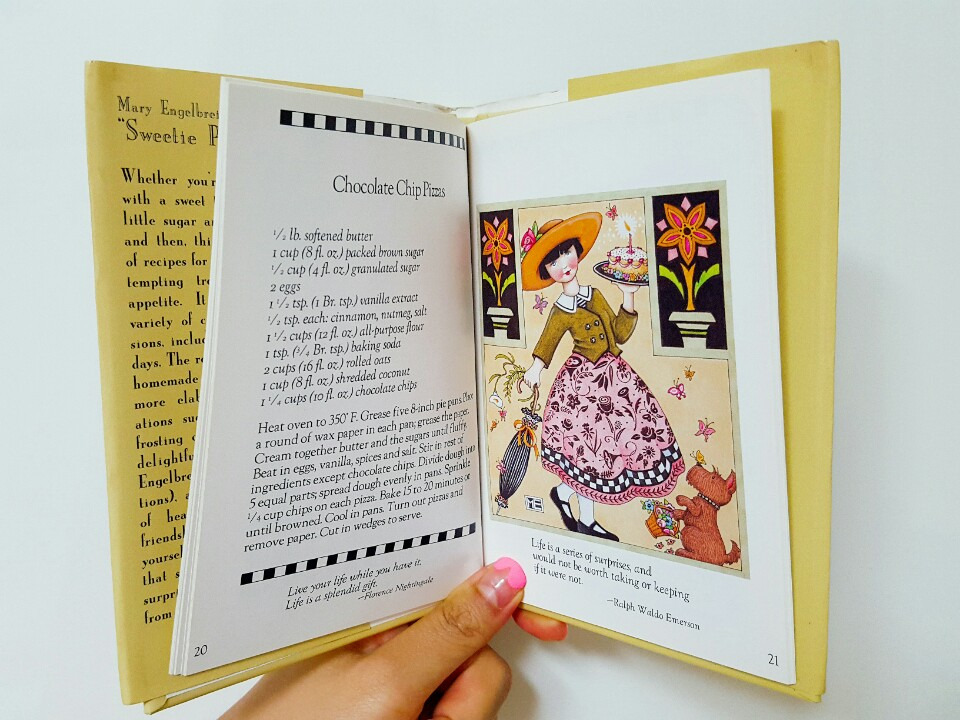 Mary Engelbrei
"Sweetie P
Whether you'r
with a sweet
little sugar a
and then, thi
of recipes for
tempting tre
appetite. It
variety of c
sions, inclu
days. The re
homemade
more elab
ations su
frosting
delightfu
Engelbre
tions), a
of hea
friends
yourse
that s
surpr
from
Chocolate Chip Pizzas
1/2 lb. softened butter
1 cup (8 fl. oz.) packed brown sugar
1/2 cup (4 fl. oz.) granulated sugar
2 eggs
1 1/2 tsp. (1 Br. tsp.) vanilla extract
1/2 tsp. each: cinnamon, nutmeg, salt
1 1/2 cups (12 fl. oz.) all-purpose flour
1 tsp. (3/4 Br. tsp.) baking soda
2 cups (16 fl. oz.) rolled oats
1 cup (8 fl. oz.) shredded coconut
1 1/4 cups (10 fl. oz.) chocolate chips
Heat oven to 350° F. Grease five 8-inch pie pans. Place
a round of wax paper in each pan; grease the paper.
Cream together butter and the sugars until fluffy.
Beat in eggs, vanilla, spices and salt. Stir in rest of
ingredients except chocolate chips. Divide dough into
5 equal parts; spread dough evenly in pans. Sprinkle
1/4 cup chips on each pizza. Bake 15 to 20 minutes or
until browned. Cool in pans. Turn out pizzas and
remove paper. Cut in wedges to serve.
Live your life while you have it.
Life is a splendid gift.
—Florence Nightingale
20
ME
Life is a series of surprises, and
would not be worth taking or keeping
if it were not.
—Ralph Waldo Emerson
21